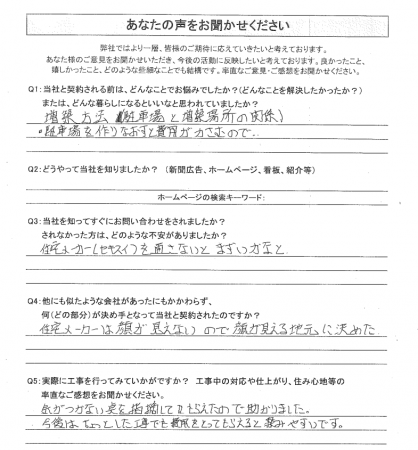 あなたの声をお聞かせください
弊社ではより一層、皆様のご期待に応えていきたいと考えております。
あなた様のご意見をお聞かせいただき、今後の活動に反映したいと考えております。良かったこと、
嬉しかったこと、どのような些細なことでも結構です。率直なご意見・ご感想をお聞かせください。
Q1:当社と契約される前は、どんなことでお悩みでしたか?(どんなことを解決したかったか?)
または、どんな暮らしになるといいなと思われていましたか?
増築方法 (駐車場と増築場所の関係)
・駐車場を作りなおすと費用がかさむので..
Q2:どうやって当社を知りましたか? (新聞広告、ホームページ、看板、紹介等)
ホームページの検索キーワード:
Q3:当社を知ってすぐにお問い合わせをされましたか?
されなかった方は、どのような不安がありましたか?
住宅メーカー(セキスイ)を通さないと まずいかなと
Q4:他にも似たような会社があったにもかかわらず、
何(どの部分)が決め手となって当社と契約されたのですか?
住宅メーカーは顔が見えないので顔が見える地元に決めた
Q5:実際に工事を行ってみていかがですか? 工事中の対応や仕上がり、住み心地等の
率直なご感想をお聞かせください。
気がつかない点を指摘してもらえたので助かりました。
今後は ちょっとした工事でも費用をとってもらえると頼みやすいです。